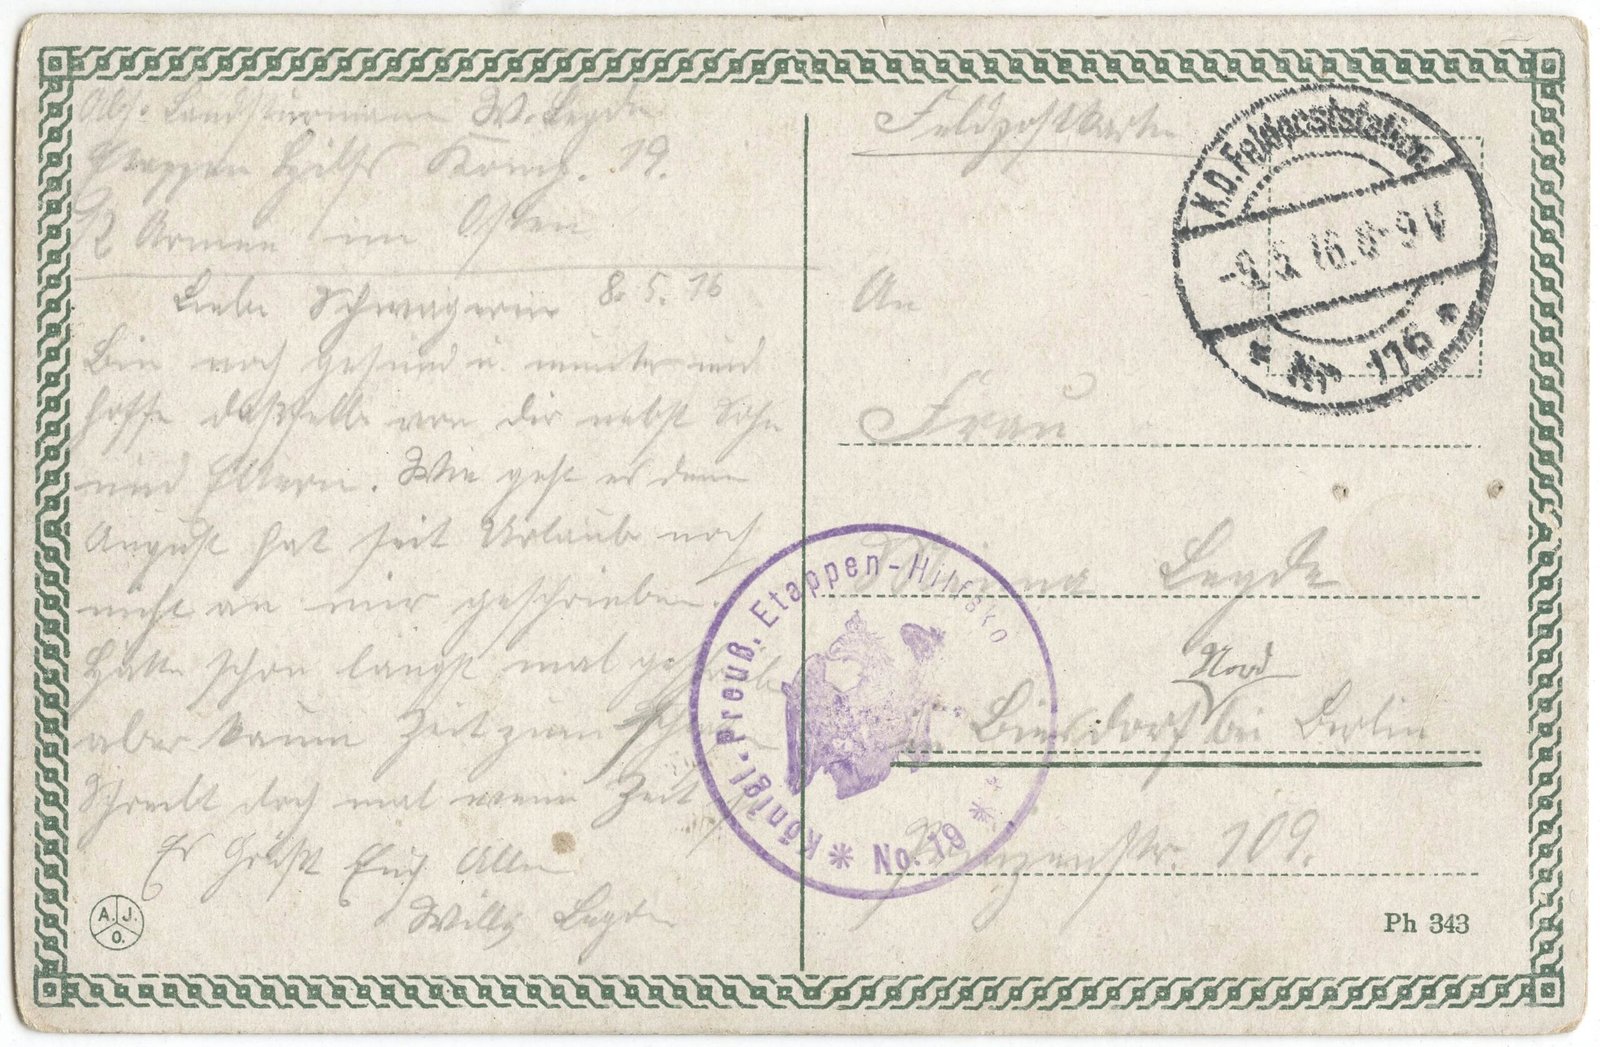 Abs. Landsturmann W. Legde
Etappen Hilfs Komp. 19.
12 Armee im Osten
Liebe Schwägerin 8.5.16
Bin noch gesund u. munter und
hoffe dasselbe von dir nebst Sohn
und Eltern. Wie geht es denn
August hat seit Urlaub noch
nicht an mir geschrieben.
Hätte schon längst mal geschrieb
aber kaum Zeit zum
Schreibt doch mal wenn Zeit
Es Grüßt Euch Alle
Willy Legde
A. J. O.
Feldpostkarte
K.D. Feldpoststation
-9.5.16.8-9V
* Nr. 176 *
An
Frau
Minna Legde
Nord
in Biesdorf bei Berlin
Prinzenstr. 109.
Königl. Preuß. Etappen-Hilfsko
No. 19
Ph 343